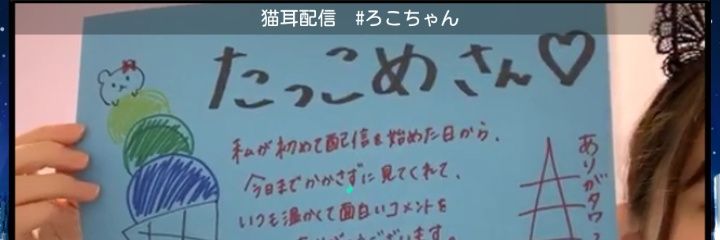 猫耳配信 #ろこちゃん
たっこめさん♡
私が初めて配信を始めた日から、
今日までかかさずに見てくれて、
いつも温かくて面白いコメントを
ございます。
ありがタワー